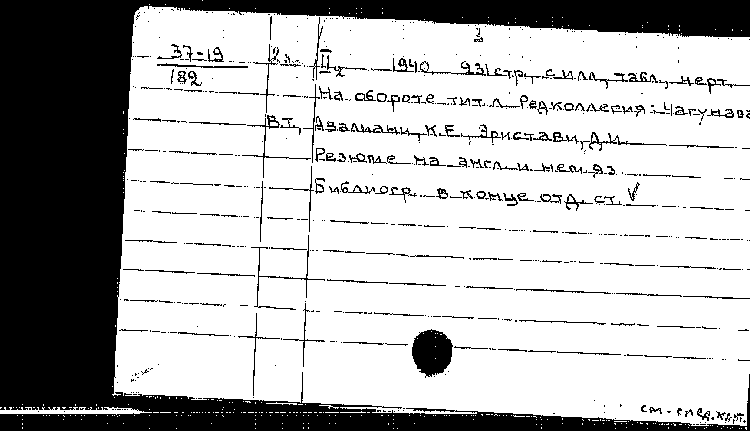 2
37-19 2э. II₂ 1940 931стр, с илл, табл, черт.
182
На обороте тит л. Редколлегия: Чагунава
В.Т., Авалиани, К.Е., Эристави, Д.И.
Резюме на англ. и нем яз.
Библиогр. в конце отд. ст. ✓
см. след. карт.